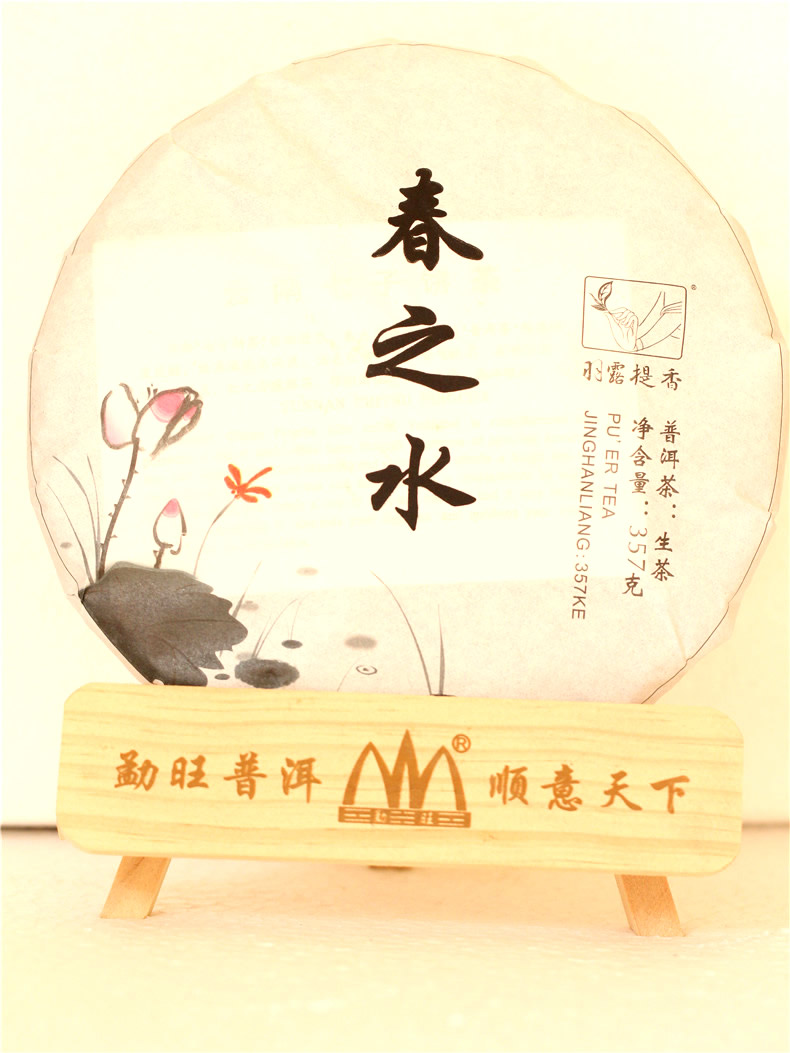 春之水
®
羽露提香
普洱茶：生茶
净含量：357克
PU'ER TEA
JINGHANLIANG:357KE
勐旺普洱
®
顺意天下